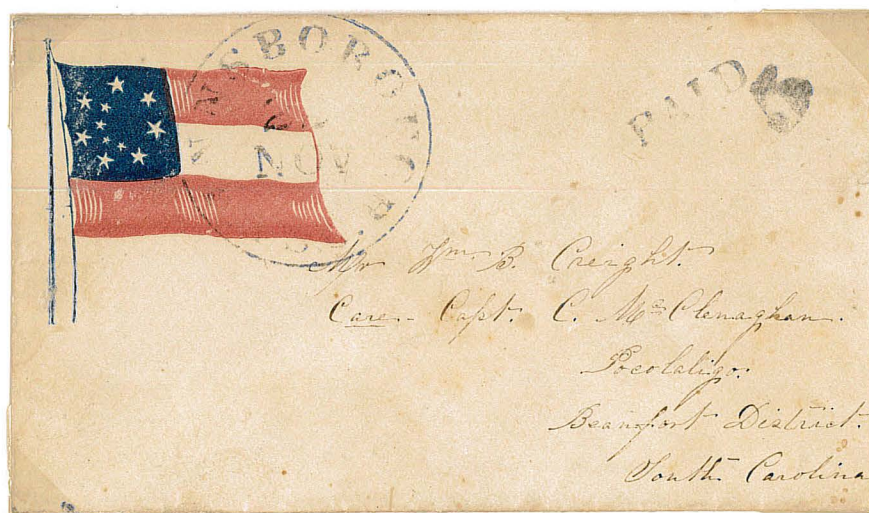 NOV
PAID 5
Mr Wm. B. Creight.
Care. Capt. C. McClenaghan.
Pocolaligo.
Beaufort District.
South Carolina